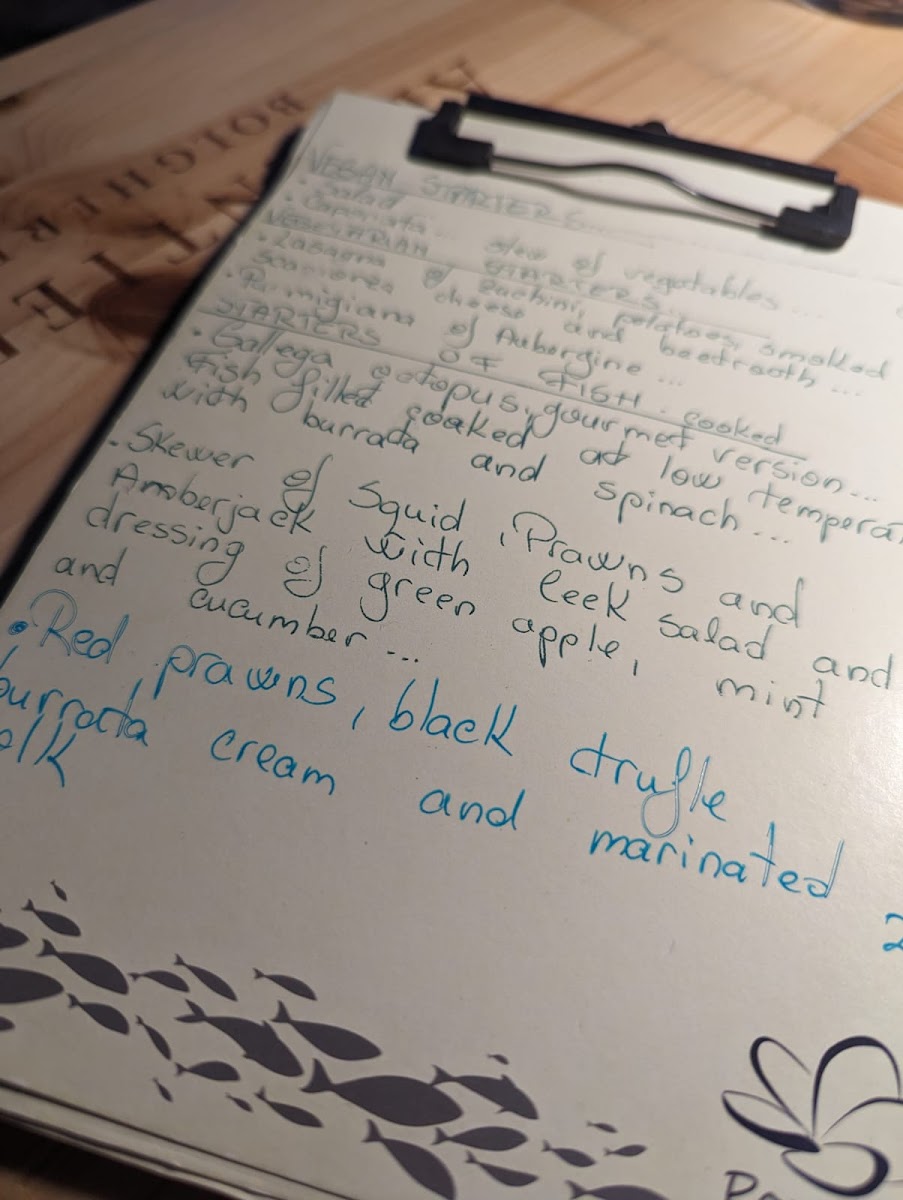 VEGAN STARTERS
• Salad
• Caponata... stew of vegetables...
VEGETARIAN STARTERS
• Lasagna of zuchini, potatoes, smoked
scamorza cheese and beetrooth...
• Parmigiana of Aubergine...
STARTERS OF FISH
• Gallega octopus, gourmet version...
Fish filled cooked at low tempera
with burrada and spinach...
• Skewer of Squid, Prawns and
Amberjack with leek salad and
dressing of green apple, mint
and cucumber...
• Red prawns, black trufle
burrata cream and marinated
2